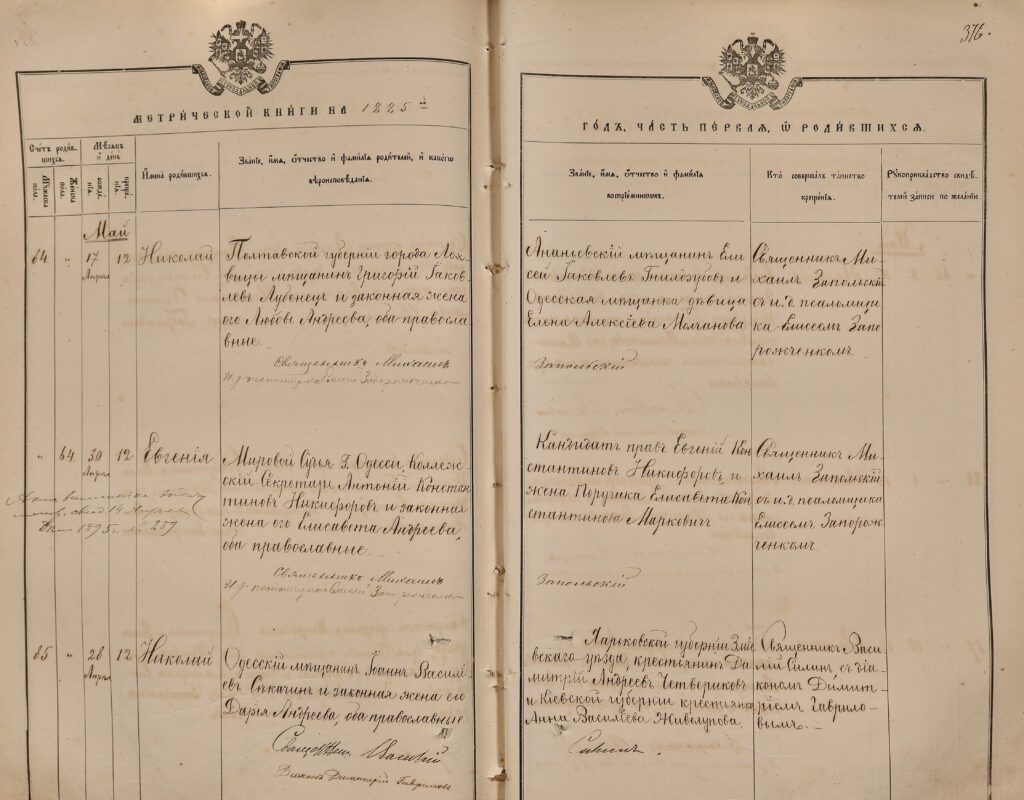 376.
МЕТРИЧЕСКОЙ КНИГИ НА 1885 й
ГОДЪ, ЧАСТЬ ПЕРВАЯ, Ѡ РОДИВШИХСЯ.
Счетъ родив-
шихся.
Мужеска
пола.
Женска
пола.
Мѣсяцъ
и день
рожде-
нія.
креще-
нія.
Имена родившихся.
Званіе, имя, отчество и фамилія родителей, и какого
вѣроисповѣданія.
Званіе, имя, отчество и фамилія
воспріемниковъ.
Кто совершалъ таинство
крещенія.
Рукоприкладство свидѣ-
телей записи по желанію
Май
84 " 17 12 Николай
Апрѣля
Полтавской губерніи города Лох-
вицы мѣщанинъ Григорій Іаков-
левъ Лубенецъ и законная жена
его Любовь Андреева, оба православ-
ные.
Священникъ Михаилъ
И. д. псаломщика Елисей Запорожченко
Ананьевскій мѣщанинъ Ели-
сей Іаковлевъ Гнилозубовъ и
Одесская мѣщанка дѣвица
Елена Алексіева Молчанова
Запольскій
Священникъ Ми-
хаилъ Запольскій
съ и. д. псаломщи-
ка Елисеемъ Запо-
рожченкомъ.
" 64 30 12 Евгенія
Апрѣля
14 Апрѣля
1895 г. № 289
Мировой Судья г. Одессы, Коллеж-
скій Секретарь Антоній Констан-
тиновъ Никифоровъ и законная
жена его Елисавета Андреева,
оба православные.
Священникъ Михаилъ
И. д. псаломщика Елисей Запорожченко
Кандидатъ правъ Евгеній Кон-
стантиновъ Никифоровъ и
жена Поручика Елисавета Кон-
стантинова Марковичъ
Запольскій
Священникъ Ми-
хаилъ Запольскій
съ и. д. псаломщика
Елисеемъ Запорож-
ченкомъ.
85 " 28 12 Николай
Апрѣля
Одесскій мѣщанинъ Іоаннъ Василі-
евъ Сѣкачинъ и законная жена его
Дарія Андреева, оба православные
Священ. Василій
Діаконъ Димитрій Гавриловъ
Харьковской губерніи Змі-
евскаго уѣзда, крестьянинъ Ди-
митрій Андреевъ Четвериковъ
и Кіевской губерніи крестьянка
Анна Василіева Живолупова.
Силинъ.
Священникъ Васи-
лій Силинъ, съ діа-
кономъ Димит-
ріемъ Гаврило-
вымъ.